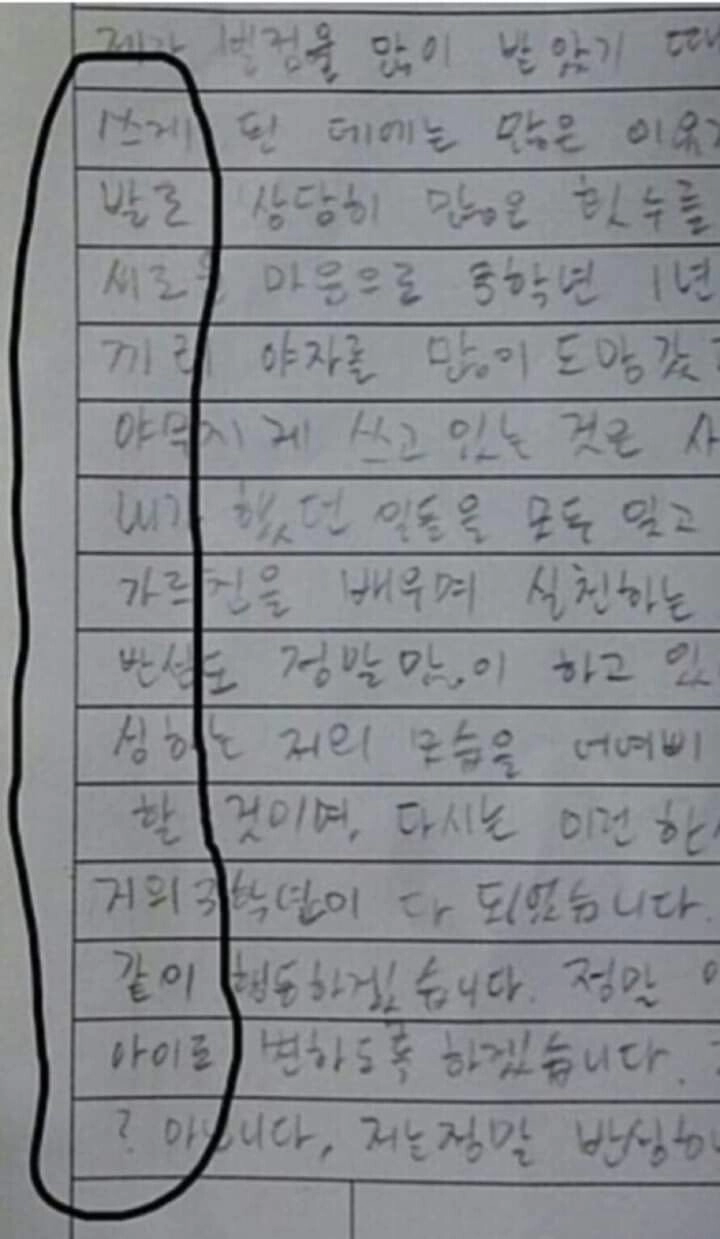 제가 벌점을 많이 받았기 때
쓰게 된 데에는 많은 이유
발로 상당히 많은 횟수를
새로운 마음으로 3학년 1년
끼리 야자를 많이 도망갔
야무지게 쓰고 있는 것은 사
내가 했던 일들을 모두 잊고
가르침을 배우며 실천하는
반성도 정말 많이 하고 있
성하는 저의 모습을 어여삐
할 것이며, 다시는 이런 한
거의 3학년이 다 되었습니다.
같이 행동하겠습니다. 정말
아이로 변하도록 하겠습니다.
? 아닙니다, 저는 정말 반성하